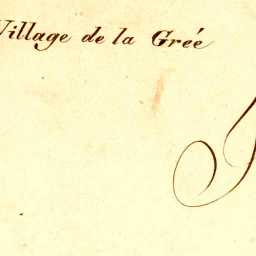 Village de la Grée